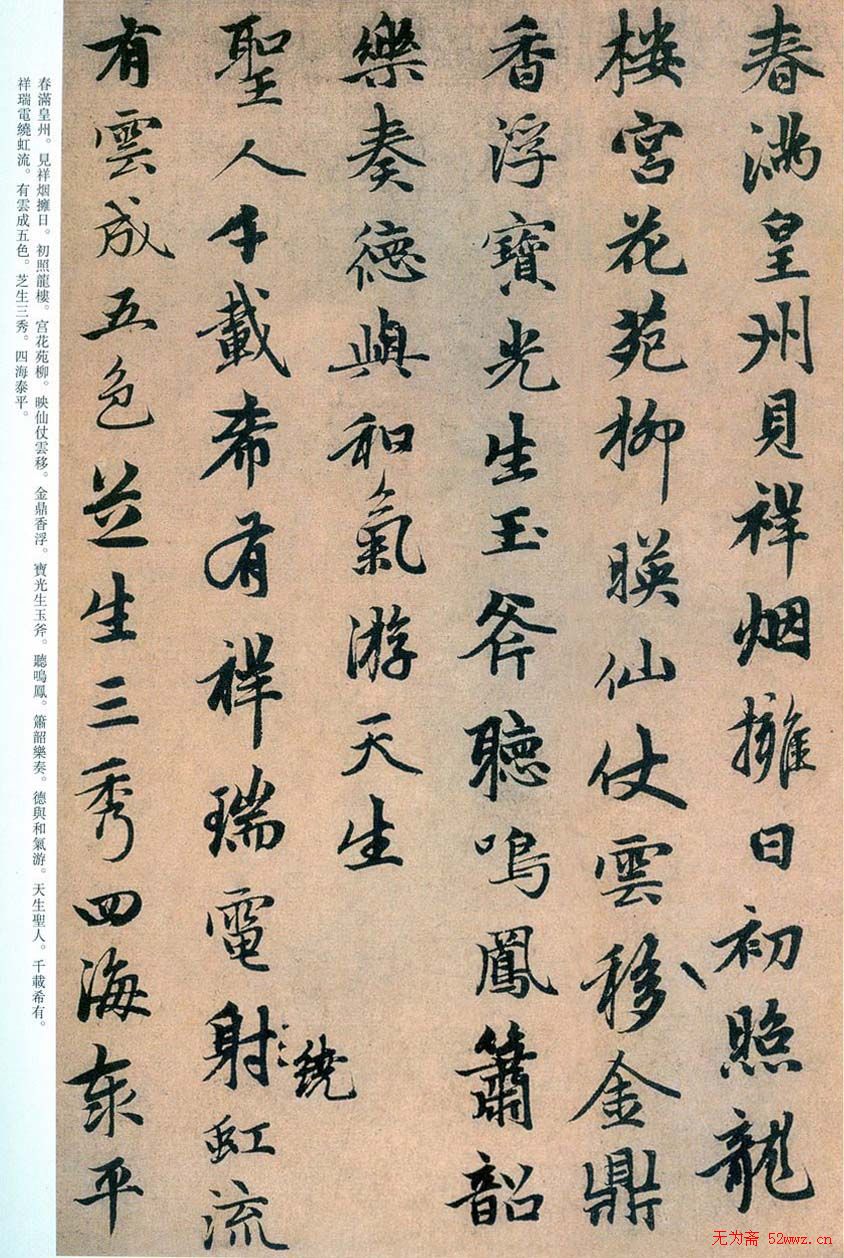 春滿皇州見祥烟擁日初照龍
樓宮花苑柳暎仙仗雲移金鼎
香浮寶光生玉斧聽鳴鳳簫韶
樂奏德與和氣游天生
聖人千載希有祥瑞電射虹流
繞
有雲成五色芝生三秀四海泰平
春滿皇州。見祥烟擁日。初照龍樓。宮花苑柳。映仙仗雲移。金鼎香浮。寶光生玉斧。聽鳴鳳。簫韶樂奏。德與和氣游。天生聖人。千載希有。
祥瑞電繞虹流。有雲成五色。芝生三秀。四海泰平。
无为斋 52wwz.cn